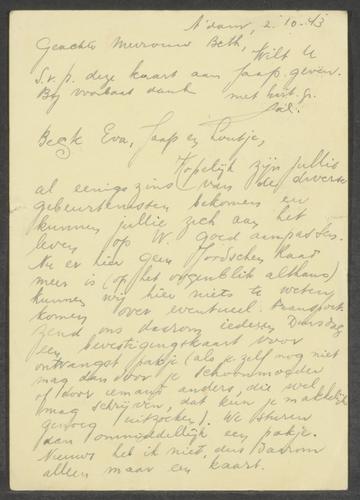 A'dam, 2.10.43
Geachte Mevrouw Beth,
Wilt U
s.v.p. deze kaart aan Jaap geven.
Bij voorbaat dank
met hart. gr.
Beste Eva, Jaap en Loutje,
Hopelijk zijn jullie
al eenigszins van de diverse
gebeurtenissen bekomen en
kunnen jullie zich aan het
leven op W. goed aanpassen.
Nu er hier geen Joodschen Raad
meer is (op het oogenblik althans)
kunnen wij hier niets te weten
komen over eventueel. transport
zend ons daarom iederen Dinsdag
een bevestigingskaart voor
ontvangst pakje (als je zelf nog niet
mag dan door je schoonmoeder
of door iemand anders, die wel
mag schrijven, dat kun je makkelijk
genoeg uitzoeken). We sturen
dan onmiddellijk een pakje.
Nieuws heb ik niet, dus daarom
alleen maar een kaart.